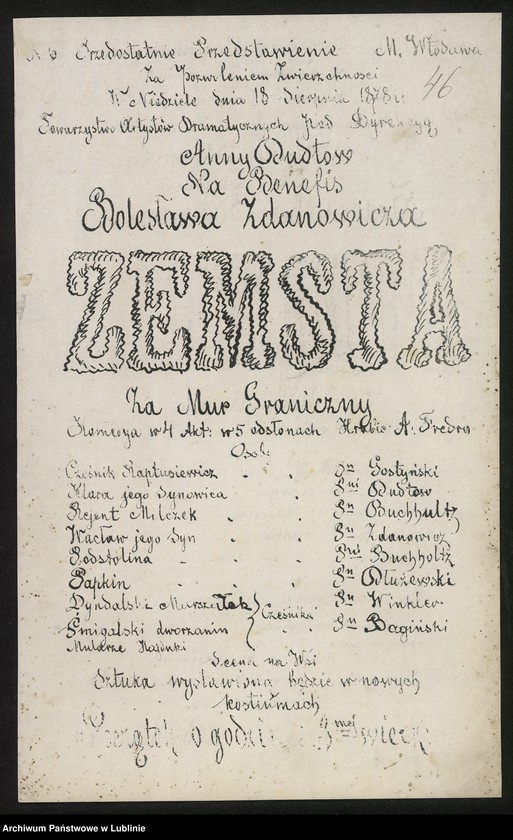 Przedostatnie Przedstawienie M. Włodawa
Za Pozwoleniem Zwierzchności
46
W Niedziele dnia 18 Sierpnia 1878 r:
Towarzystwo Artystów Dramatycznych Pod Dyrekcyą
Anny Budtow
Na Benefis
Bolesława Zdanowicza
ZEMSTA
Za Mur Graniczny
Komedya w 4 Akt: w 5 odsłonach Hrabie A. Fredro
Osoby
Cześnik Raptusiewicz Pn Gostyński
Klara jego Synowica Pni Budtów
Rejent Milczek Pn Buchholtz
Wacław jego Syn Pn Zdanowicz
Podstolina Pni Buchholtz
Papkin Pn Dłużewski
Dyndalski Marszałek Pn Winkler
Cześnika
Śmigalski dworzanin Pn Bagiński
Mularze Hajduki
Scena na Wsi
Sztuka wystawiona będzie w nowych
kostiumach
Początek o godzi 8mej wiecz
Archiwum Państwowe w Lublinie